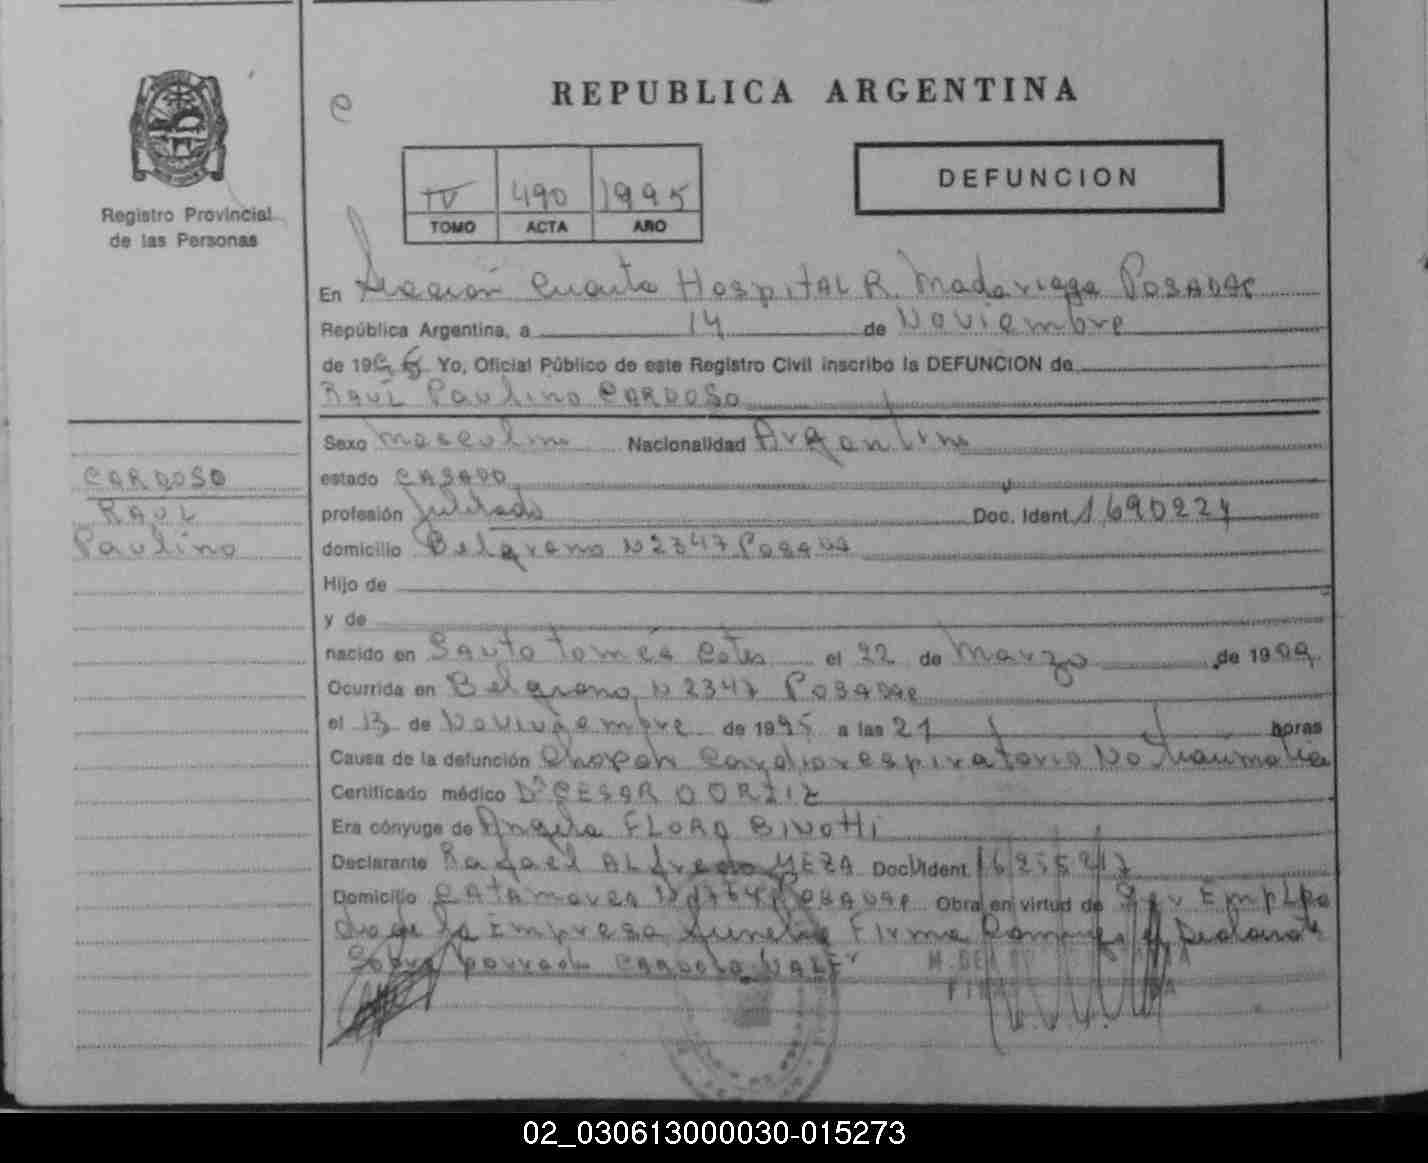 REPUBLICA ARGENTINA
e
Registro Provincial
de las Personas
IV 490 1995
TOMO ACTA AÑO
DEFUNCION
En Sección Cuarta Hospital R. Madariaga Posadas
República Argentina, a 14 de Noviembre
de 1995 Yo, Oficial Público de este Registro Civil inscribo la DEFUNCION de
RAÚL Paulino CARDOSO
CARDOSO
RAÚL
Paulino
Sexo Masculino Nacionalidad Argentino
estado CASADO
profesión Jubilado Doc. Ident. 1690224
domicilio Belgrano N 2347 Posadas
Hijo de
y de
nacido en Santo Tomés Ctes el 22 de Marzo de 1909
Ocurrida en Belgrano N 2347 POSADAS
el 13 de Noviembre de 1995 a las 21 horas
Causa de la defunción Cardiorespiratorio No traumatico
Certificado médico Dr CESAR O ORTIZ
Era cónyuge de Angela FLORA BINOTTI
Declarante Rafael ALfredo MEZA Doc. Ident.
Domicilio CATAMARCA N 1764 POSADAS Obra en virtud de Ser Empleado
de la Empresa Firma
Sobre borrado CARDOSO VALE
02_030613000030-015273